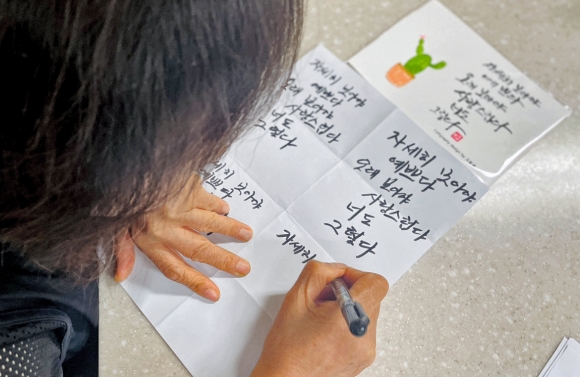 자세히 보아야
예쁘다
오래 보아야
사랑스럽다
너도
그렇다
자세히 보아야
예쁘다
오래 보아야
사랑스럽다
너도
그렇다
자세히 보아야
예쁘다
오래 보아야
사랑스럽다
너도
그렇다
보아야
예쁘다
자세히